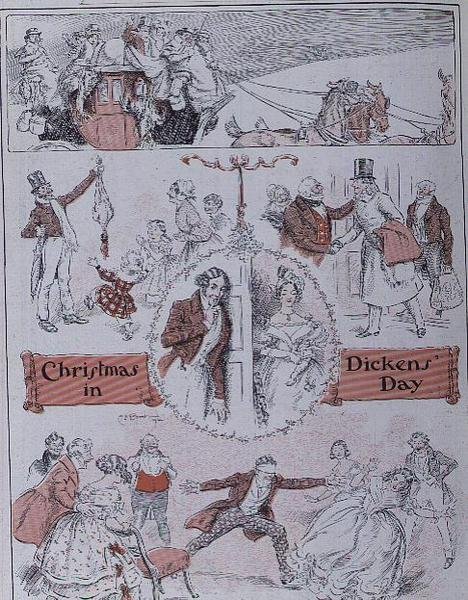 Christmas
in
Dickens'
Day